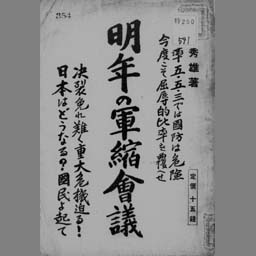 354
特250
591
秀雄著
率五・五・三では國防は危險
今度こそ屈辱的比率を覆へせ
明年の軍縮會議
決裂免れ難く重大危機迫る!
日本はどうなる?國民よ起て
定價 十五錢